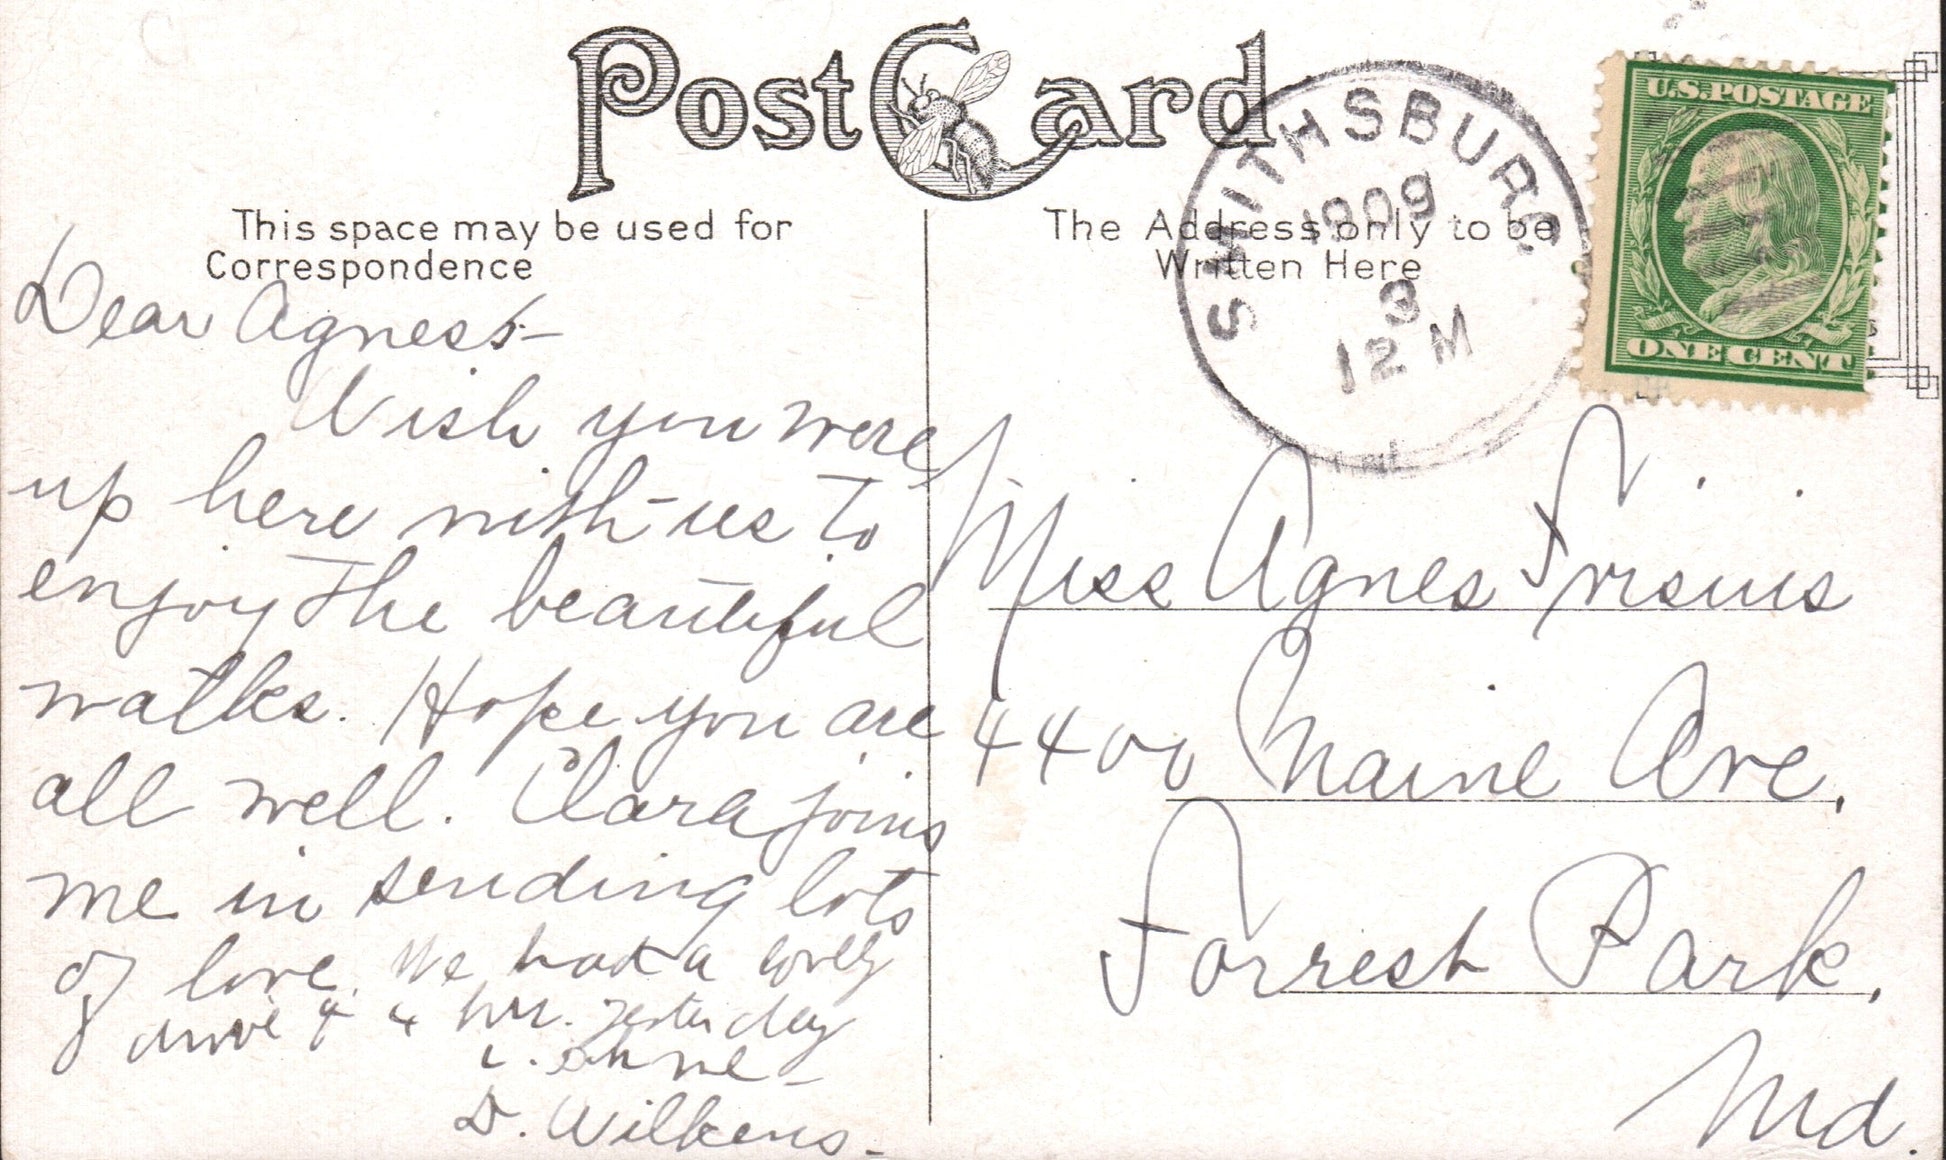 Post Card
This space may be used for
Correspondence
Dear Agnes:-
Wish you were
up here with us to
enjoy the beautiful
walks. Hope you are
all well. Clara joins
me in sending lots
of love. We had a lovely
drive 4 hr. yesterday
D. Wilkens.
The Address only to be
Written Here
SMITHSBURG
1909
3
12 M
U.S. POSTAGE
ONE CENT
Miss Agnes
4400 Maine Ave.
Forrest Park.
Md.